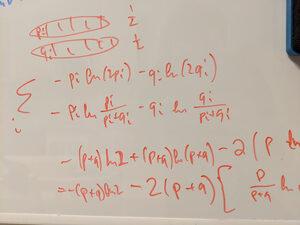 pi
qi
Σ - pi ln(2pi) - qi ln(2qi)
i
- pi ln pi/(pi+qi) - qi ln qi/(pi+qi)
- (p+q) ln 2 + (p+q) ln (p+q) - 2 ( p
= -(p+q) ln 2 - 2 (p+q) { p/(p+q) ln